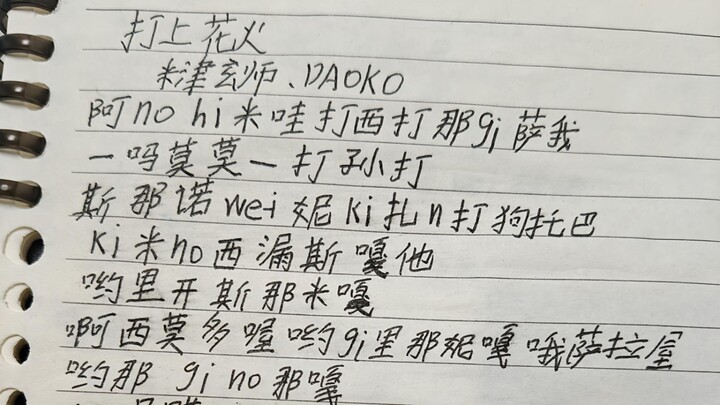 打上花火
米津玄师、DAOKO
阿no hi米哇打西打那gi萨我
一吗莫莫一打孙打
斯那诺wei妮ki扎n打狗托巴
ki米no西漏斯嘎他
哟里开斯那米嘎
啊西莫多喔哟gi里那妮嘎哦萨拉屋
哟那 gi no那嘎